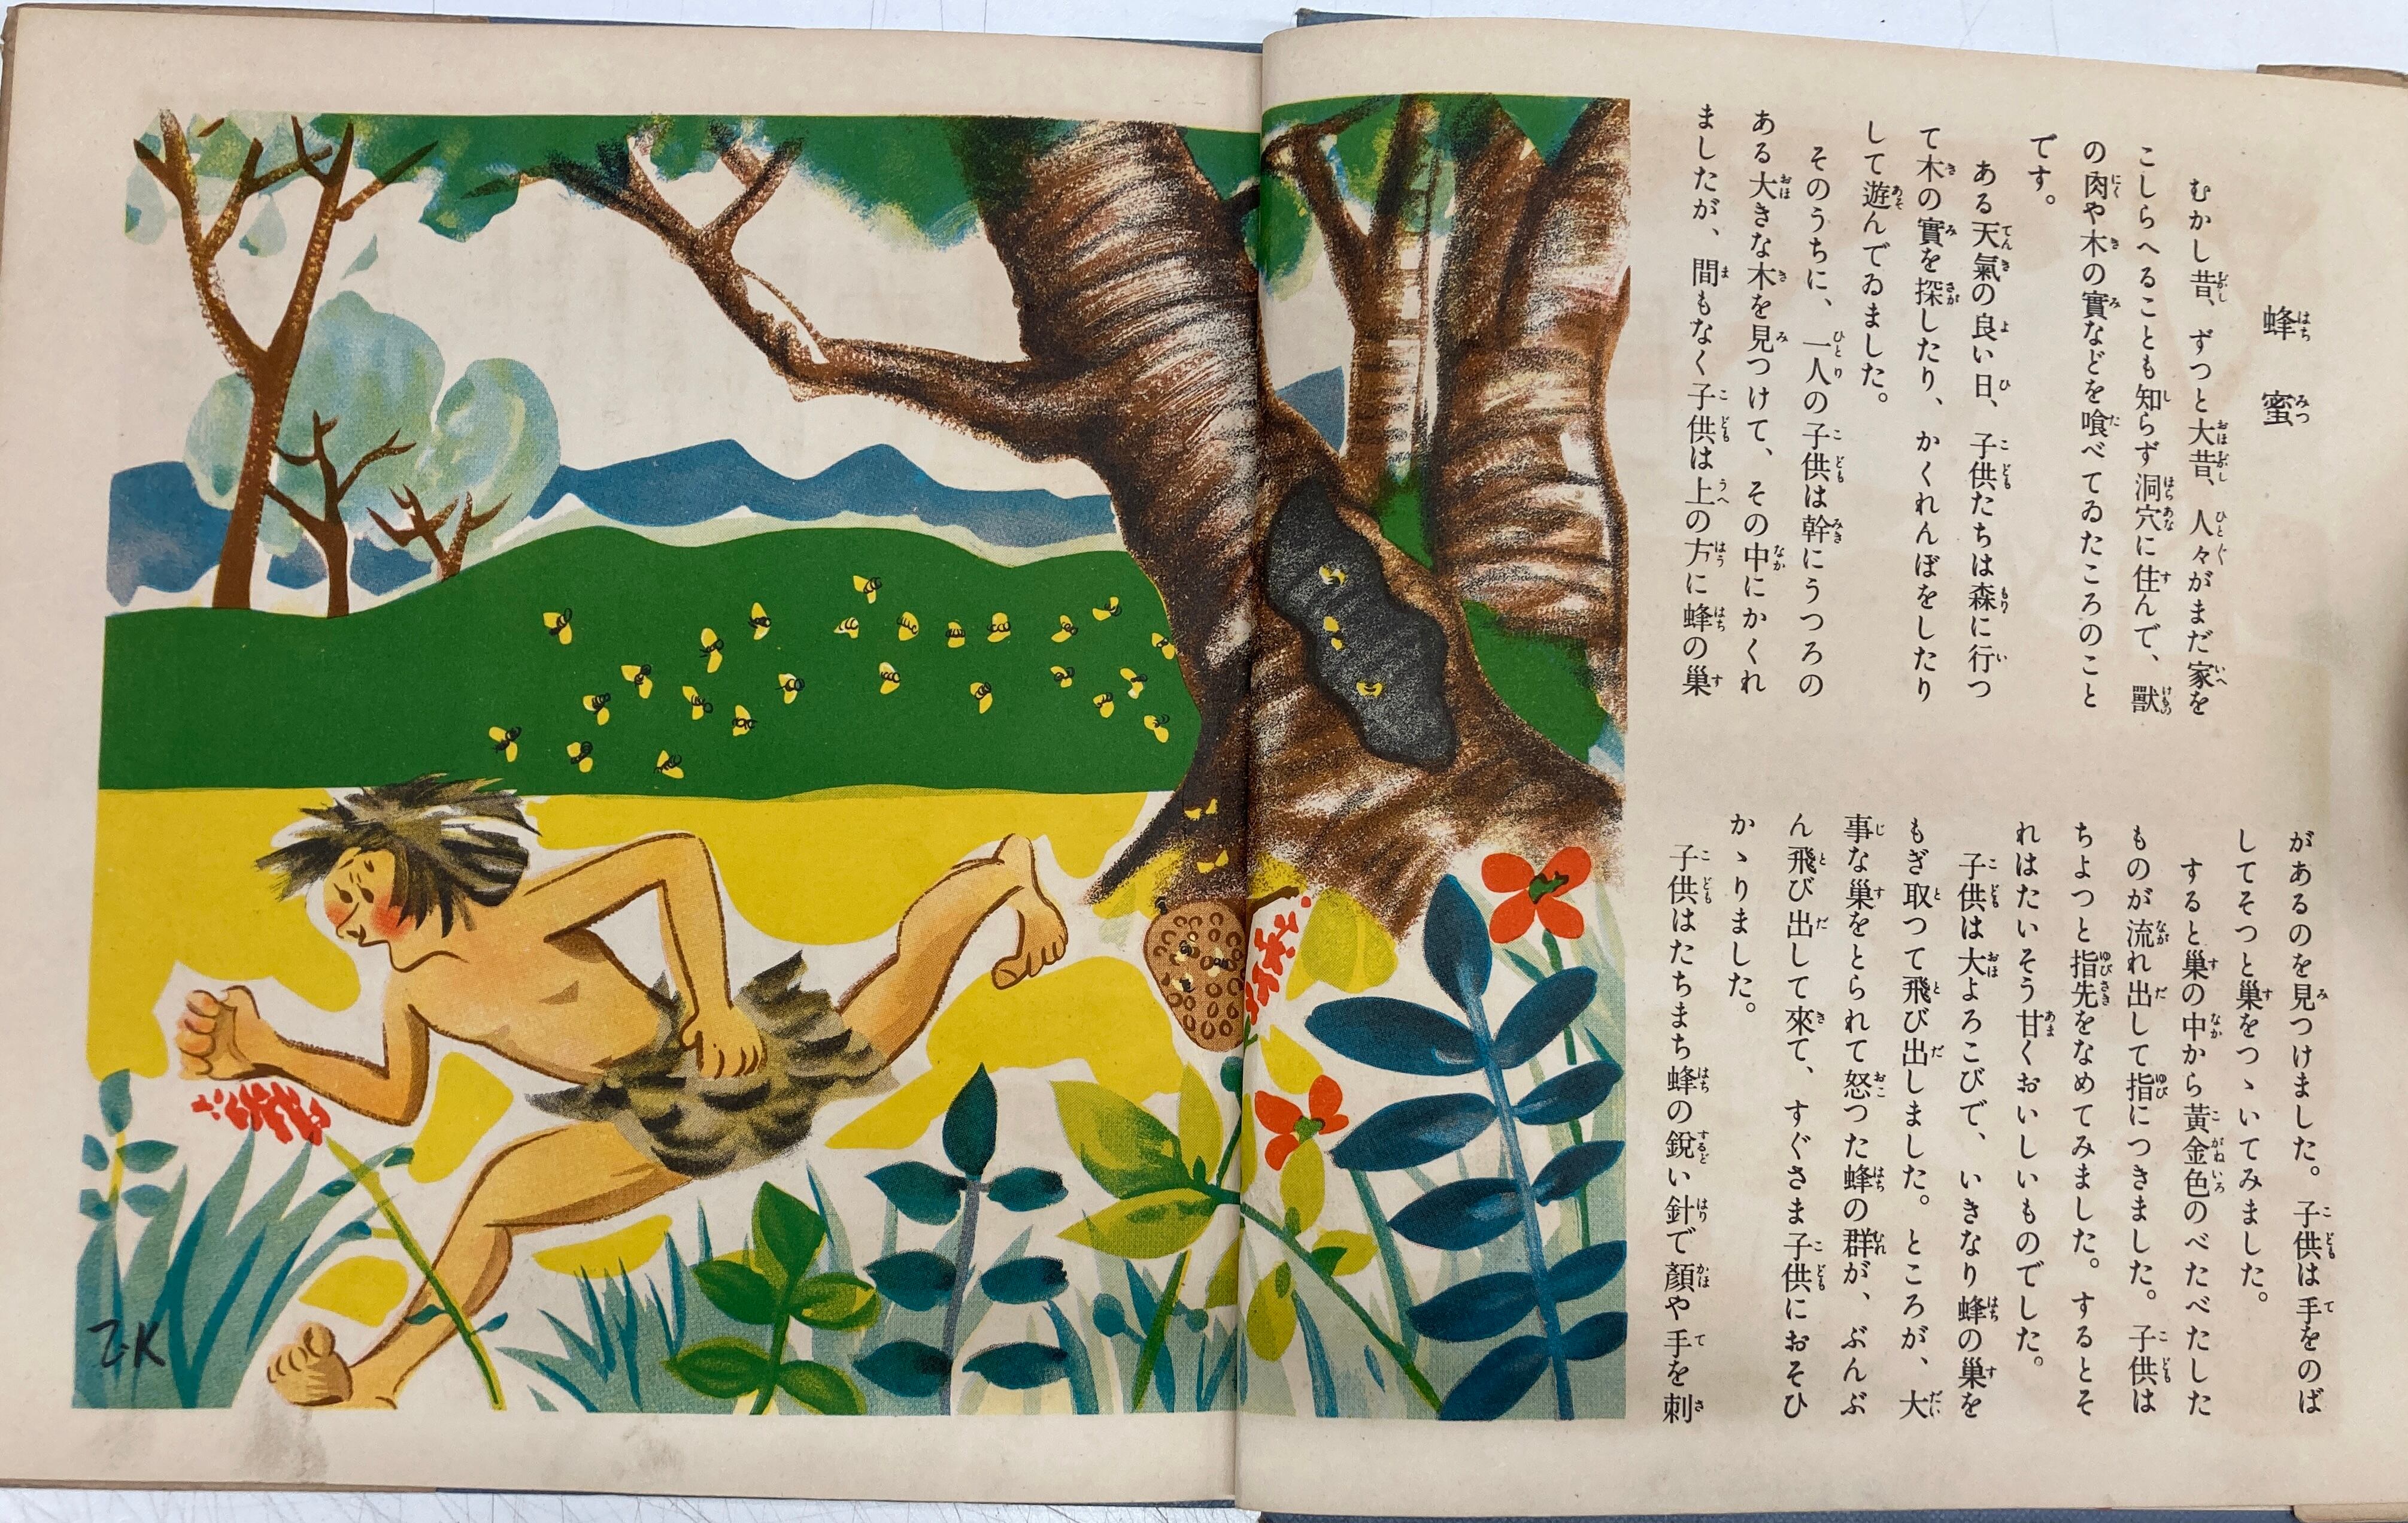 蜂蜜
むかし昔、ずつと大昔、人々がまだ家を
こしらへることも知らず洞穴に住んで、獸
の肉や木の實などを喰べてゐたころのこと
です。
ある天氣の良い日、子供たちは森に行つ
て木の實を探したり、かくれんぼをしたり
して遊んでゐました。
そのうちに、一人の子供は幹にうつろの
ある大きな木を見つけて、その中にかくれ
ましたが、間もなく子供は上の方に蜂の巣
があるのを見つけました。子供は手をのば
してそつと巣をつゝいてみました。
すると巣の中から黃金色のべたべたした
ものが流れ出して指につきました。子供は
ちよつと指先をなめてみました。するとそ
れはたいそう甘くおいしいものでした。
子供は大よろこびで、いきなり蜂の巣を
もぎ取つて飛び出しました。ところが、大
事な巣をとられて怒つた蜂の群が、ぶんぶ
ん飛び出して來て、すぐさま子供におそひ
かゝりました。
子供はたちまち蜂の銳い針で顏や手を刺
Z.K